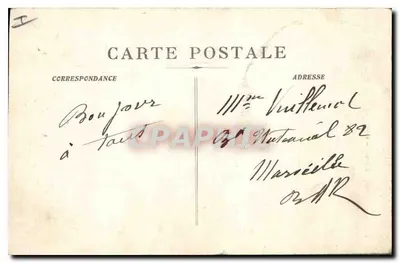 CARTE POSTALE
CORRESPONDANCE
ADRESSE
Bonjour
à tous
Mme Vuillemot
Bd National 82
Marseille
BdR
CPARAMA